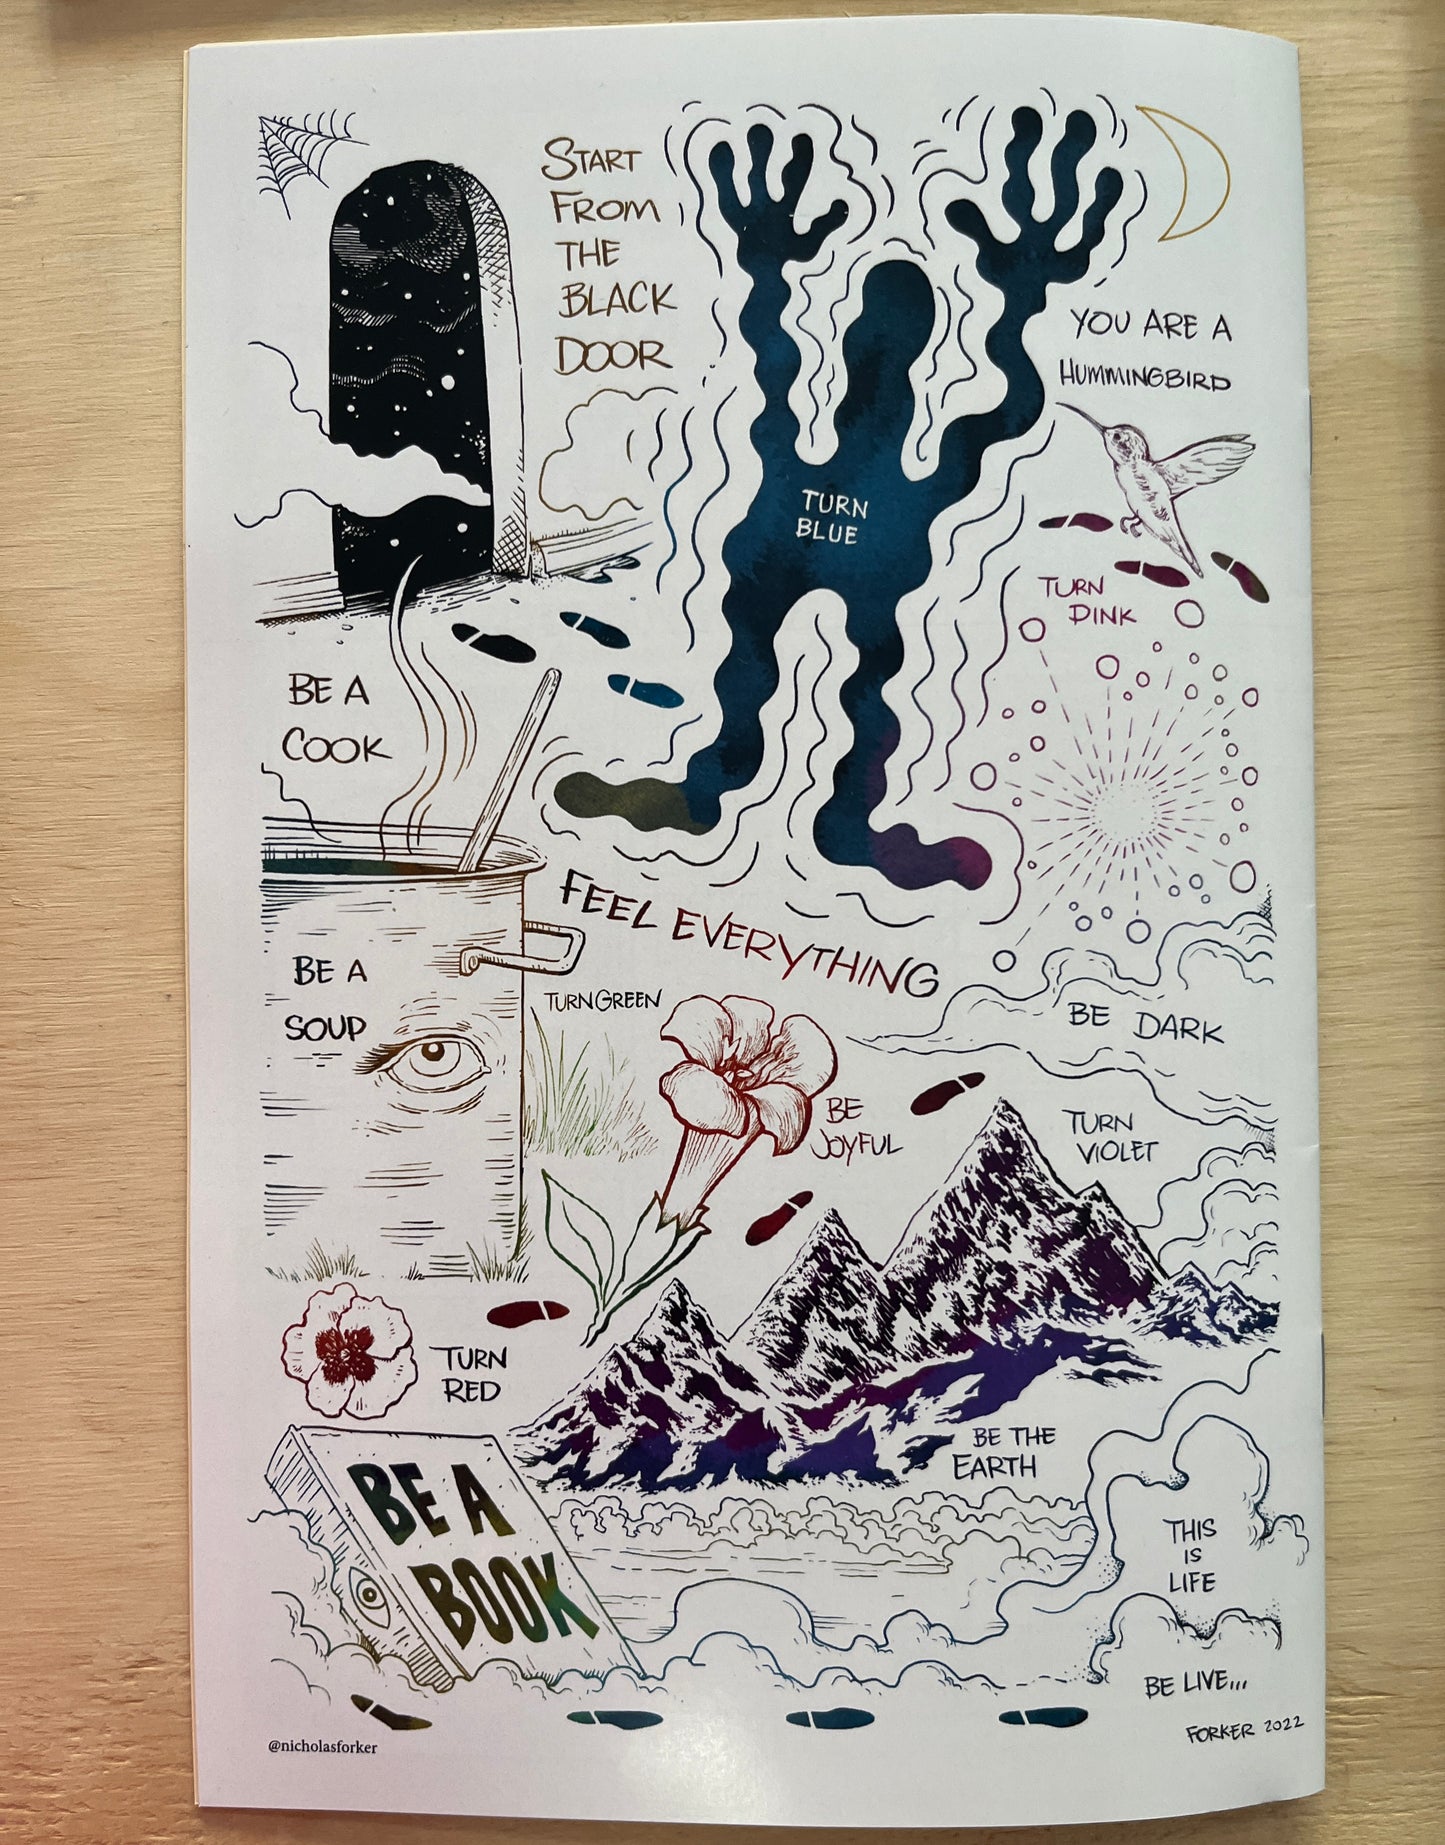 START
FROM
THE
BLACK
DOOR
TURN
BLUE
YOU ARE A
HUMMINGBIRD
TURN
PINK
BE A
COOK
FEEL EVERYTHING
BE A
SOUP
TURN GREEN
BE DARK
BE
JOYFUL
TURN
VIOLET
TURN
RED
BE THE
EARTH
BE A
BOOK
THIS
IS
LIFE
BE LIVE...
FORKER 2022
@nicholasforker